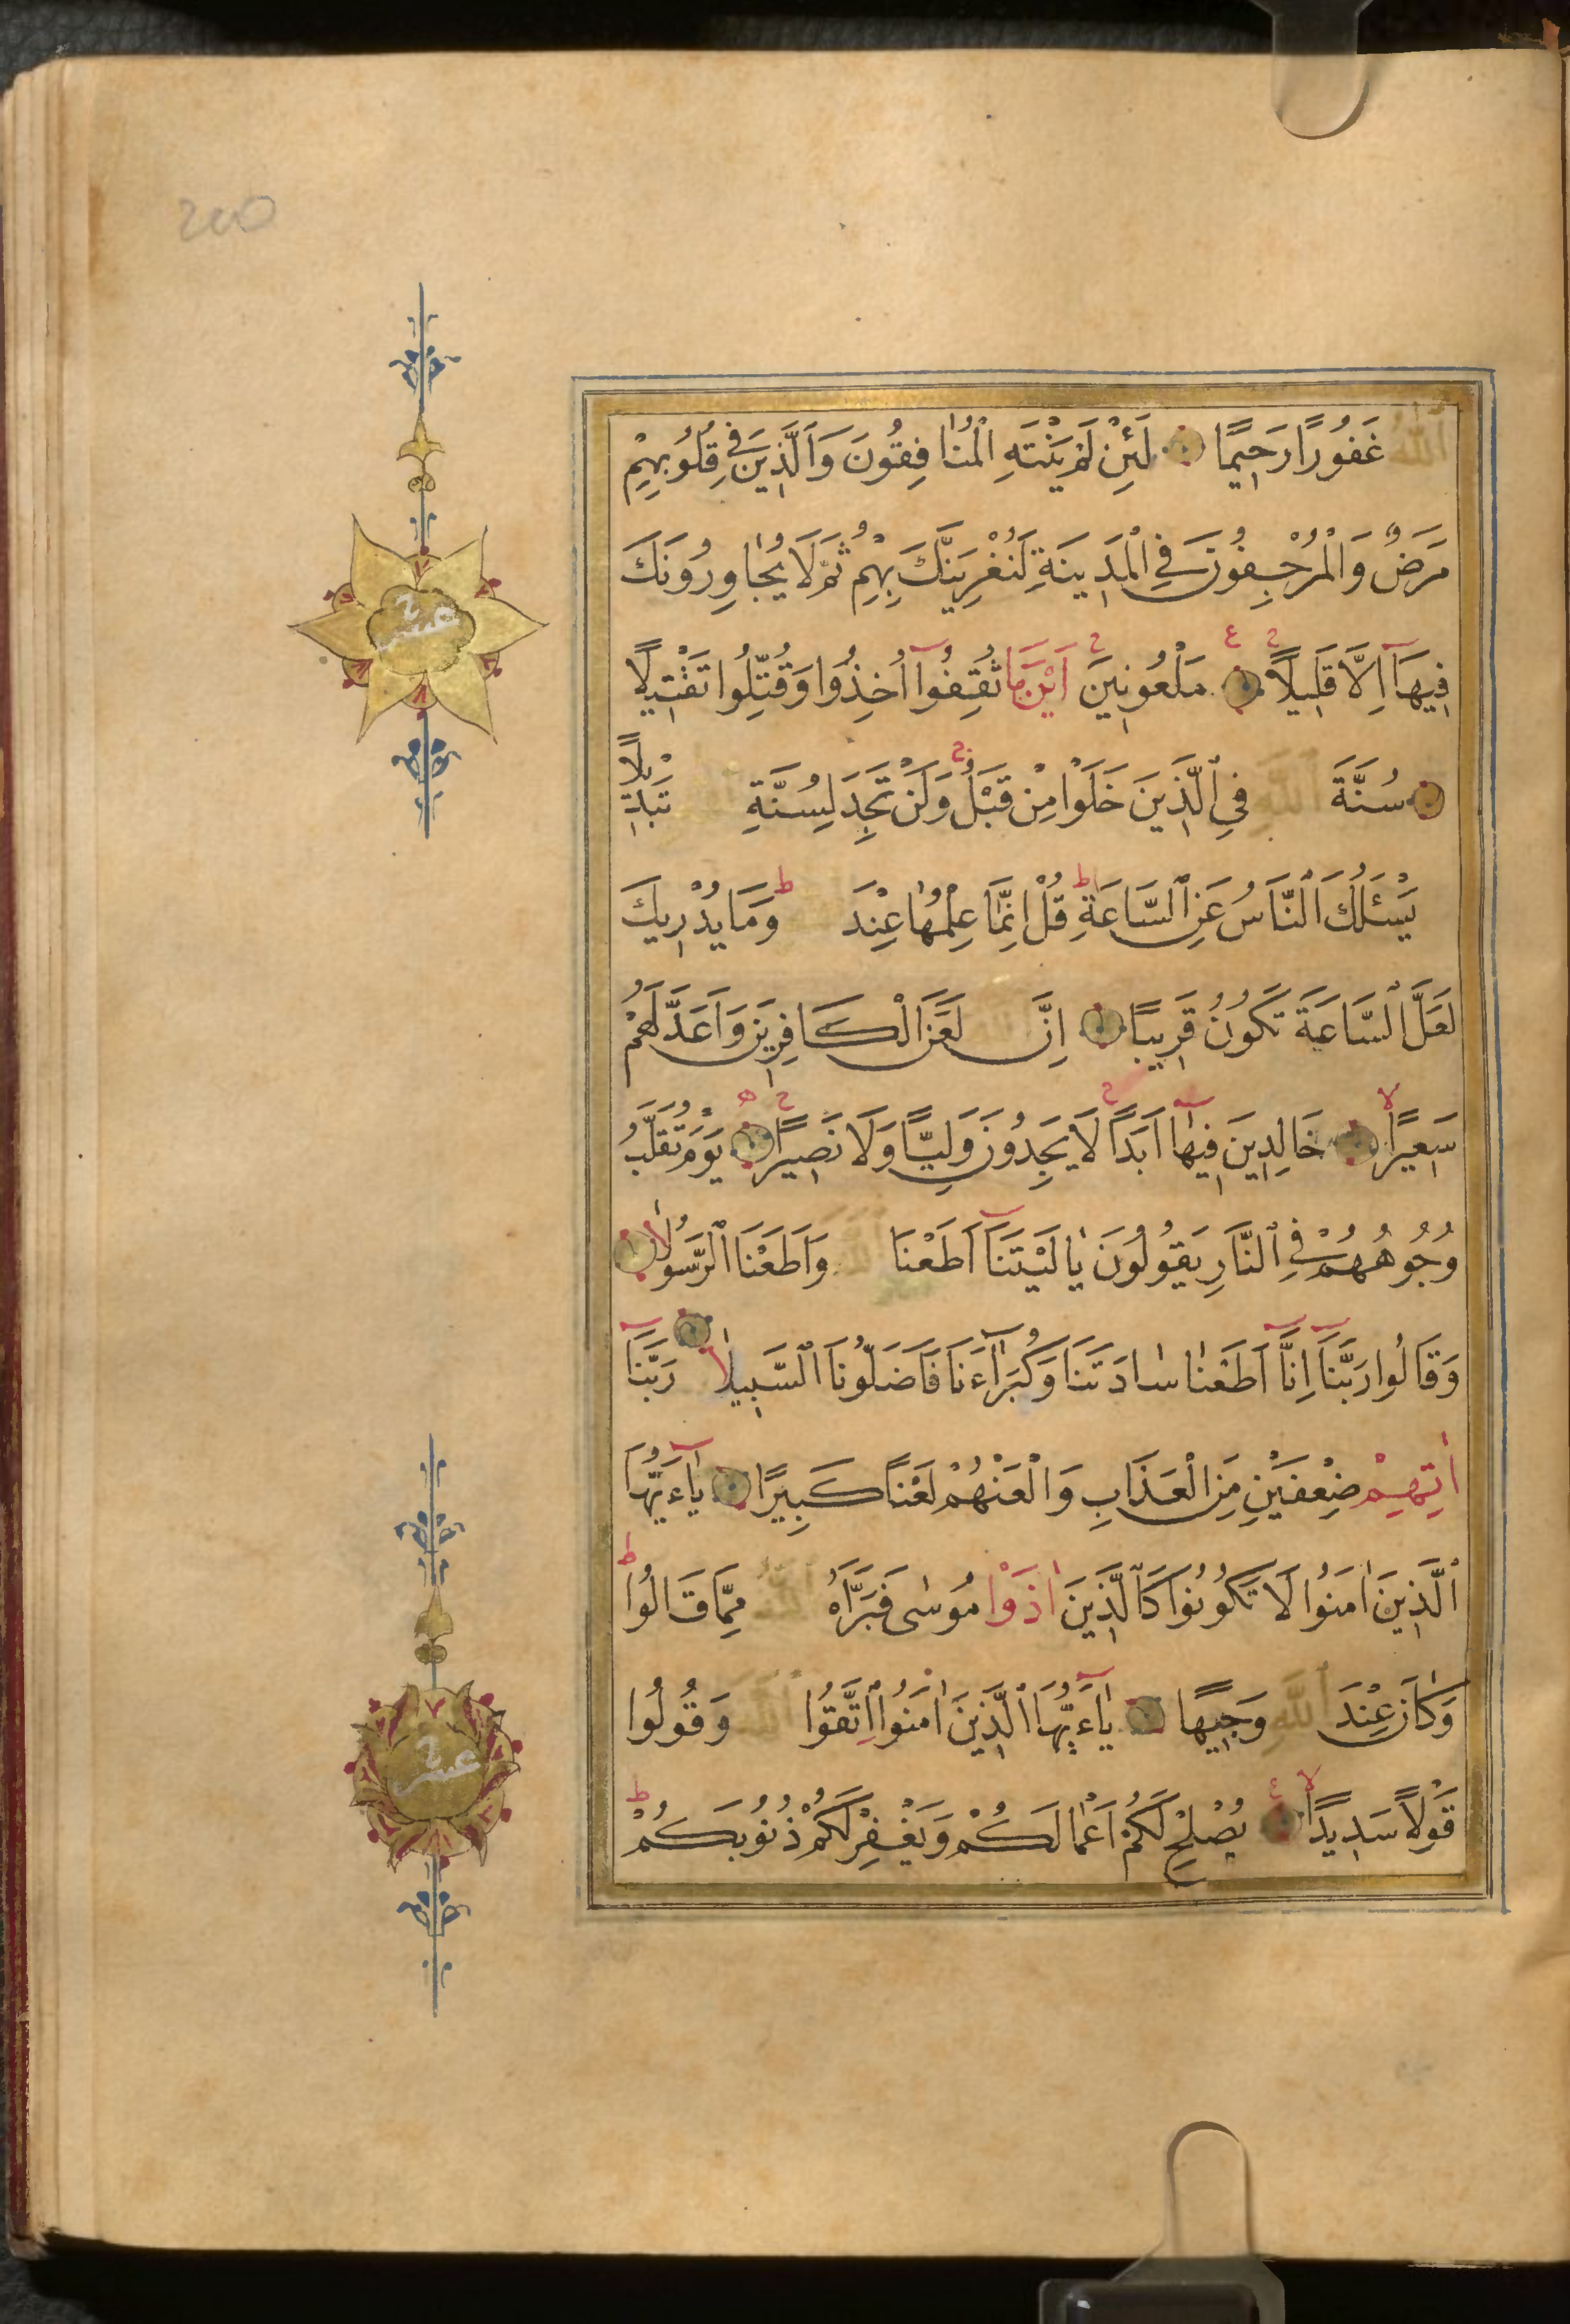 الله غَفُورًا رَحِيمًا لَئِنْ لَمْ يَنْتَهِ الْمُنَافِقُونَ وَالَّذِينَ فِي قُلُوبِهِمْ
مَرَضٌ وَالْمُرْجِفُونَ فِي الْمَدِينَةِ لَنُغْرِيَنَّكَ بِهِمْ ثُمَّ لَا يُجَاوِرُونَكَ
فِيهَآ اِلَّا قَلِيلًا مَلْعُونِينَ اَيْنَ مَا ثُقِفُوآ اُخِذُوا وَقُتِّلُوا تَقْتِيلًا
سُنَّةَ الله فِي الَّذِينَ خَلَوْا مِنْ قَبْلُ وَلَنْ تَجِدَ لِسُنَّةِ تَبْدِيلًا
يَسْئَلُكَ النَّاسُ عَنِ السَّاعَةِ قُلْ اِنَّمَا عِلْمُهَا عِنْدَ وَمَا يُدْرِيكَ
لَعَلَّ السَّاعَةَ تَكُونُ قَرِيبًا اِنَّ الله لَعَنَ الْكَافِرِينَ وَاَعَدَّ لَهُمْ
سَعِيرًا خَالِدِينَ فِيهَآ اَبَدًا لَا يَجِدُونَ وَلِيًّا وَلَا نَصِيرًا يَوْمَ تُقَلَّبُ
وُجُوهُهُمْ فِي النَّارِ يَقُولُونَ يَا لَيْتَنَآ اَطَعْنَا الله وَاَطَعْنَا الرَّسُولَا
وَقَالُوا رَبَّنَآ اِنَّآ اَطَعْنَا سَادَتَنَا وَكُبَرَآءَنَا فَاَضَلُّونَا السَّبِيلَا رَبَّنَآ
اٰتِهِمْ ضِعْفَيْنِ مِنَ الْعَذَابِ وَالْعَنْهُمْ لَعْنًا كَبِيرًا يَآءَيُّهَا
الَّذِينَ اٰمَنُوا لَا تَكُونُوا كَالَّذِينَ اٰذَوْا مُوسٰى فَبَرَّاَهُ الله مِمَّا قَالُوا
وَكَانَ عِنْدَ الله وَجِيهًا يَآءَيُّهَا الَّذِينَ اٰمَنُوا اتَّقُوا الله وَقُولُوا
قَوْلًا سَدِيدًا يُصْلِحْ لَكُمْ اَعْمَالَكُمْ وَيَغْفِرْ لَكُمْ ذُنُوبَكُمْ
عشر
عشر
200